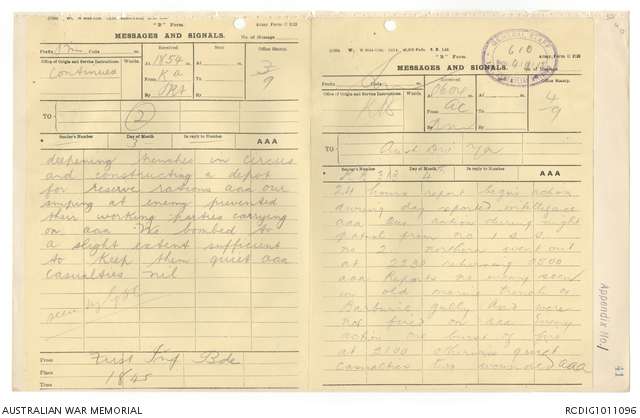 "B" Form.
Army Form C 2123
MESSAGES AND SIGNALS.
No. of Message
Prefix Sm Code m.
Received
Sent
Office Stamp.
Office of Origin and Service Instructions.
Continued
At 1854 m.
From Ka
By
3
9
TO
(2)
Sender's Number
Day of Month
In reply to
AAA
3
deepening trenches in Circus
and constructing a depot
for reserve rations aaa our
sniping at enemy prevented
their working parties carrying
on aaa We bombed to
a slight extent sufficient
to keep them quiet aaa
Casualties nil
From First Inf Bde
Place
Time 1845
"B" Form.
Army Form C 2123
MESSAGES AND SIGNALS.
No. of Message
GENERAL STAFF
610
Prefix Code m.
Received
Sent
Office Stamp.
Office of Origin and Service Instructions.
At 0604 m.
From
By
4
9
TO
Aust Div
Sender's Number
Day of Month
In reply to
AAA
4
24 hours report begins
during day reported intelligence
aaa during night
patrol from no 1 S.S.
no 2 Northern went out
at 2230 returning 0500
aaa Reports no enemy seen
in old
gully and were
not fired on aaa Enemy
action one burst of fire
at 2100 otherwise quiet
Casualties two wounded aaa
Appendix No 1
41
AUSTRALIAN WAR MEMORIAL
RCDIG1011096